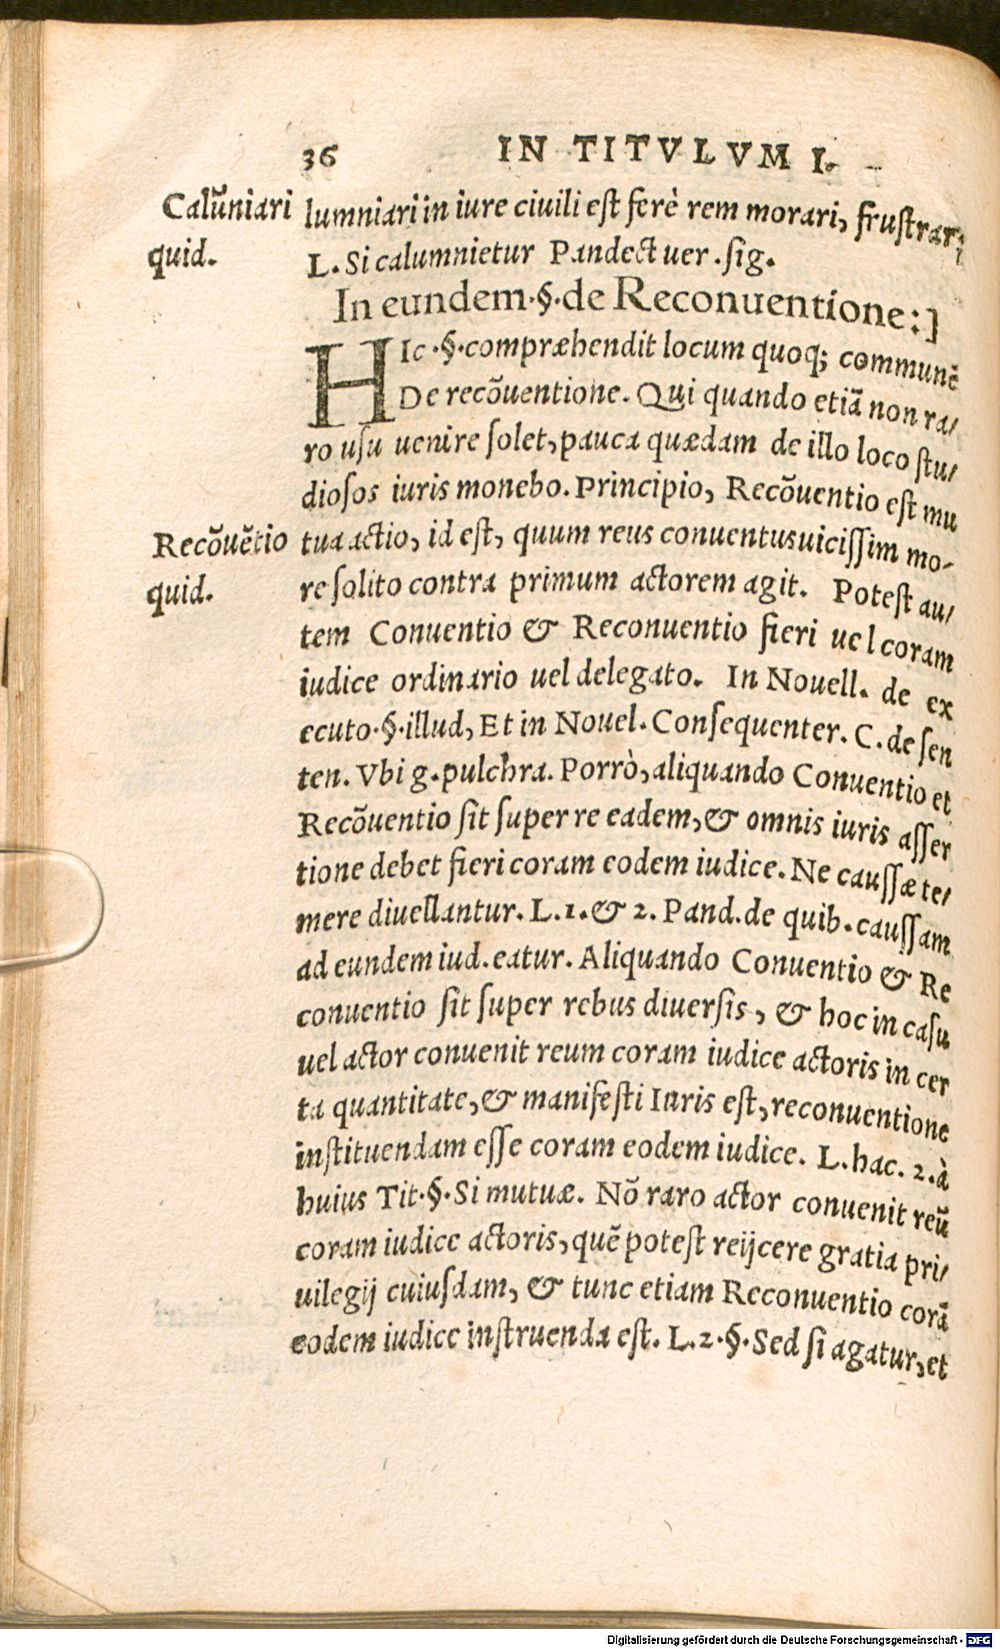 36 IN TITVLVM I.
Calũniari
quid.
lumniari in iure ciuili est ferè rem morari, frustrari
L. Si calumnietur Pandect uer .sig.
In eundem·§·de Reconuentione:]
HIc ·§·compræhendit locum quoq; communẽ
De recõuentione. Qui quando etiã non ra/
ro usu uenire solet, pauca quædam de illo loco stu/
diosos iuris monebo. Principio, Recõuentio est mu
Recõuẽtio
quid.
tua actio, id est, quum reus conuentus uicissim mo-
re solito contra primum actorem agit. Potest au/
tem Conuentio & Reconuentio fieri uel coram
iudice ordinario uel delegato. In Nouell. de ex
ecuto·§·illud, Et in Nouel. Consequenter. C. de sen
ten. Vbi g. pulchra. Porrò, aliquando Conuentio et
Recõuentio sit super re eadem, & omnis iuris asser
tione debet fieri coram eodem iudice. Ne caussæ te/
mere diuellantur. L. 1. & 2. Pand. de quib. caussam
ad eundem iud. eatur. Aliquando Conuentio & Re
conuentio sit super rebus diuersis, & hoc in casu
uel actor conuenit reum coram iudice actoris in cer
ta quantitate, & manifesti Iuris est, reconuentione
instituendam esse coram eodem iudice. L. hac. 2. à
huius Tit·§·Si mutuæ. Nõ raro actor conuenit reũ
coram iudice actoris, quẽ potest reijcere gratia pri/
uilegij cuiusdam, & tunc etiam Reconuentio corã
eodem iudice instruenda est. L. 2·§·Sed si agatur, et
Digitalisierung gefördert durch die Deutsche Forschungsgemeinschaft - DFG